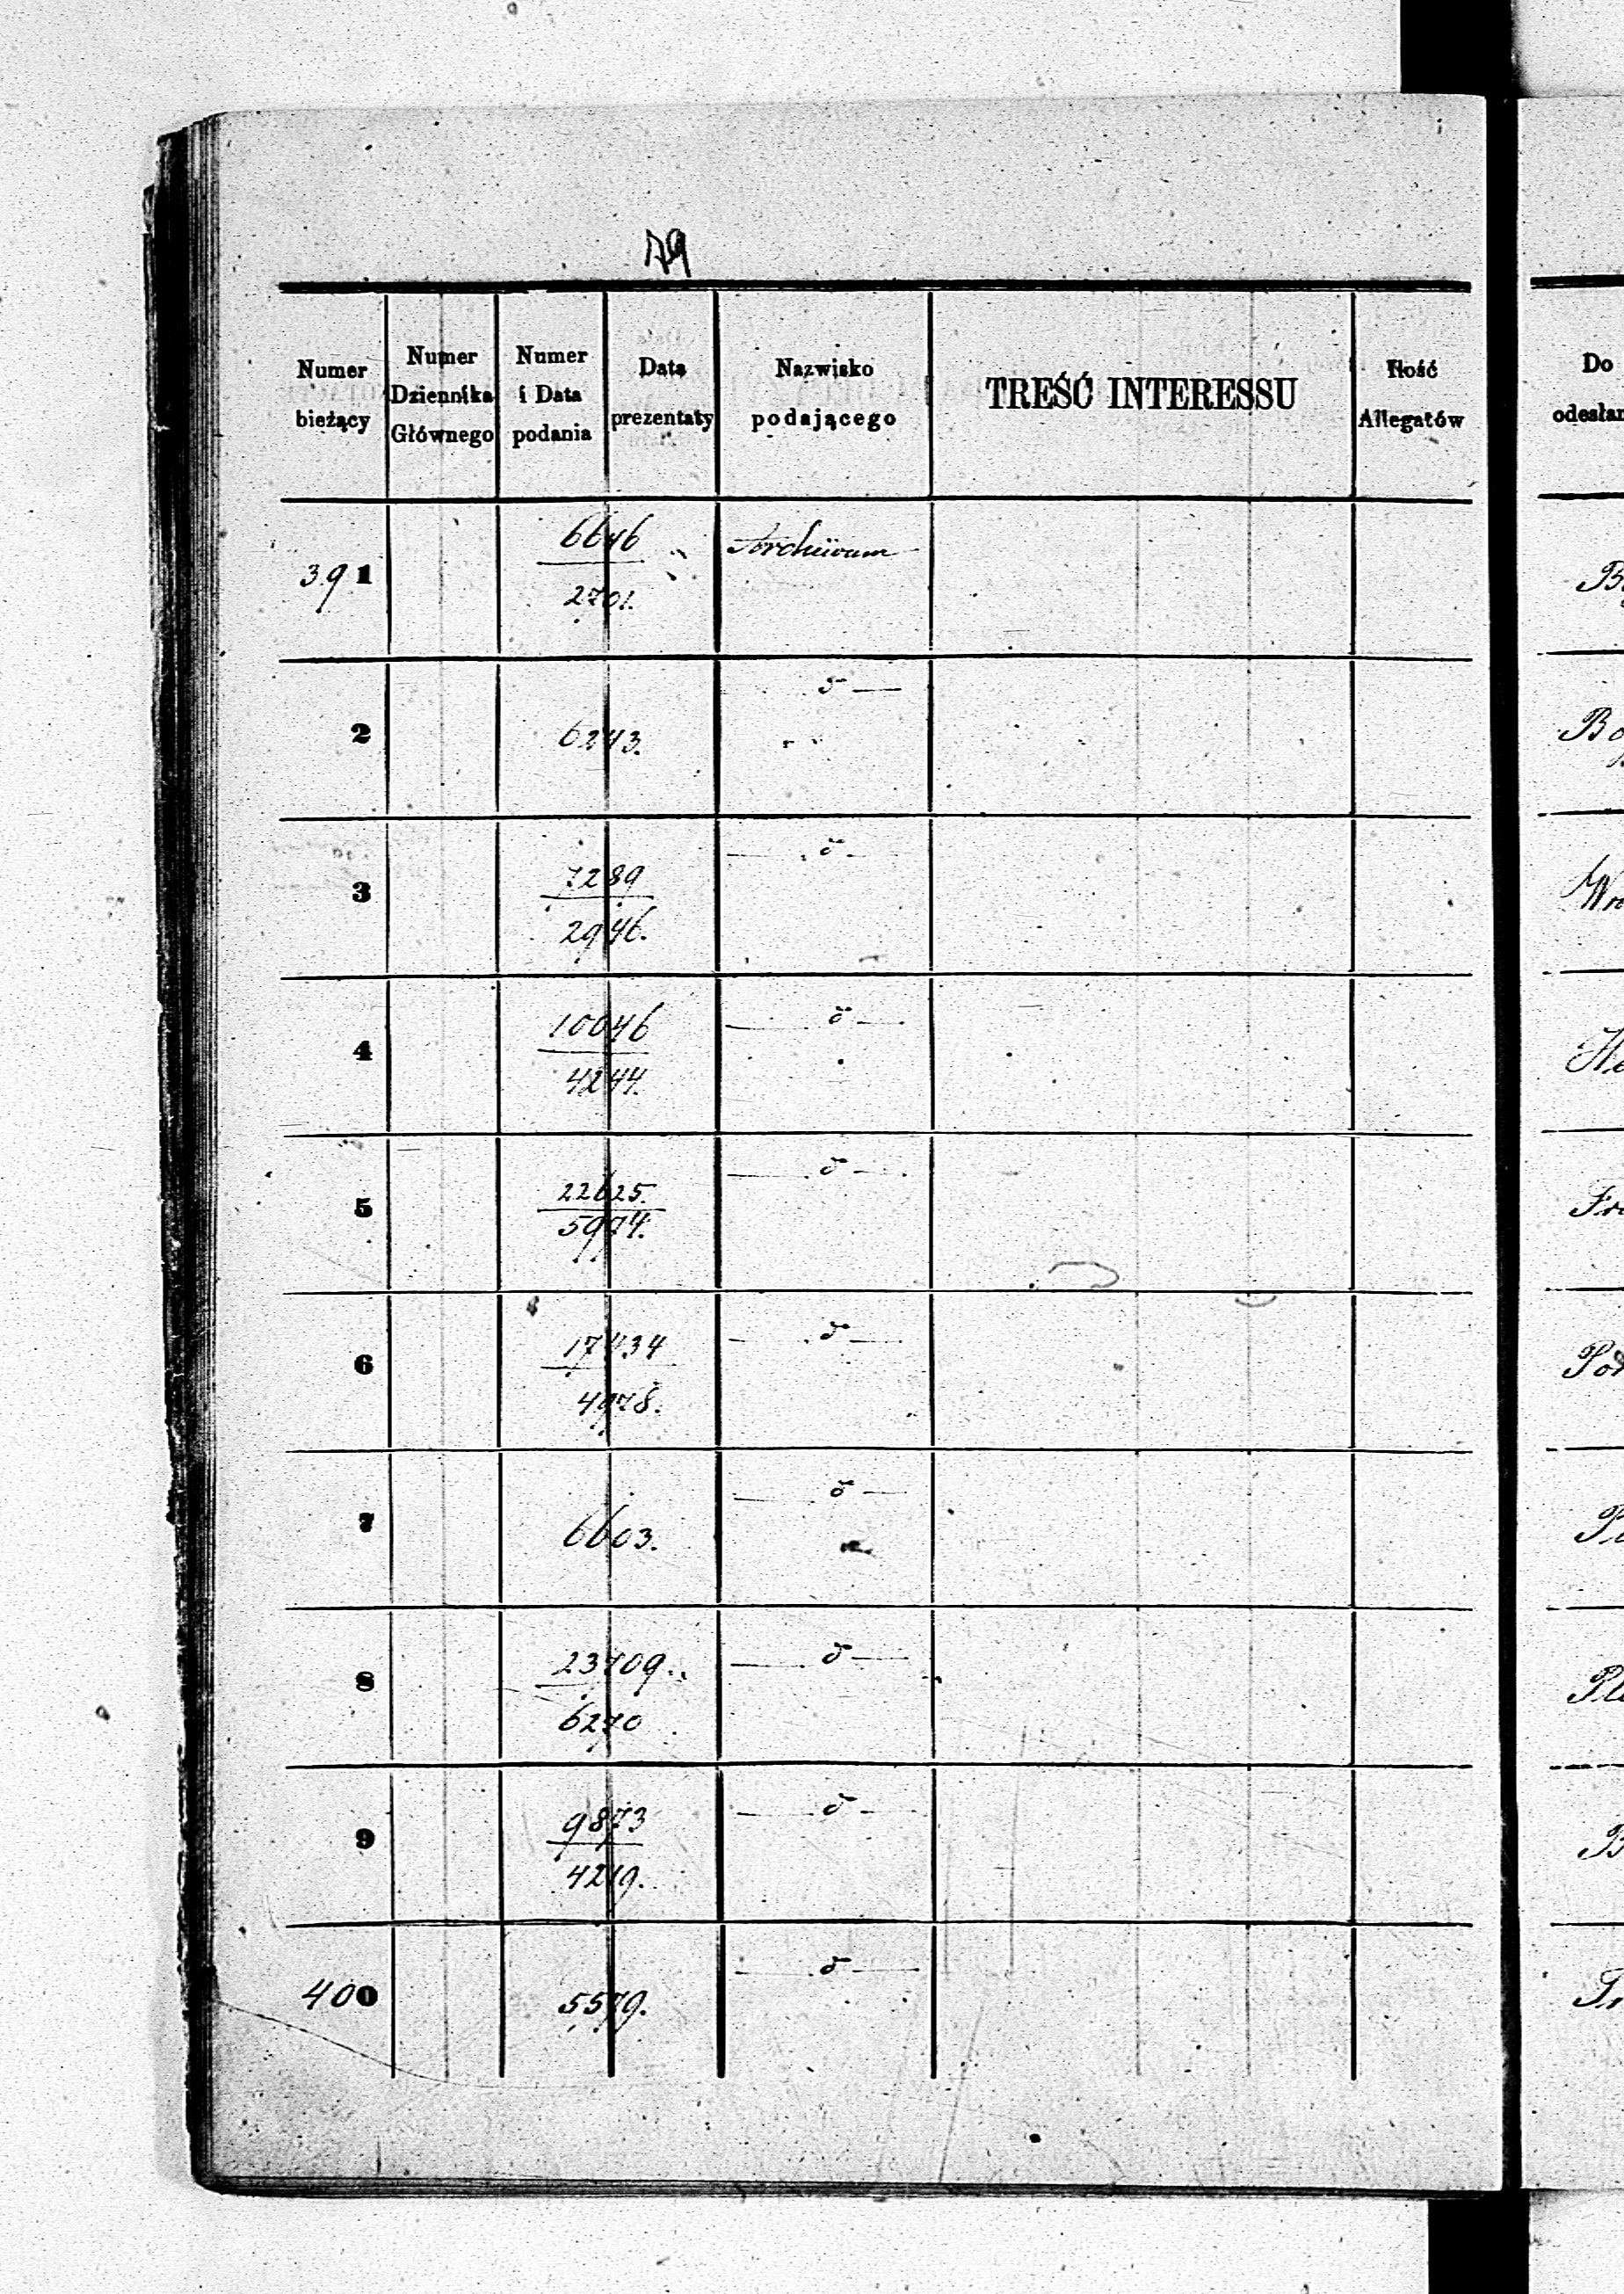 79
Numer bieżący
Numer Dziennika Głównego
Numer i Data podania
Data prezentaty
Nazwisko podającego
TREŚĆ INTERESSU
Ilość Allegatów
Do
391
6646
2701.
Archiwum
2
6243.
3
7289
2946.
4
10046
4244.
5
22625.
5974.
6
17434
4978.
7
6603.
8
23709.
6270
9
9873
4219.
400
5579.